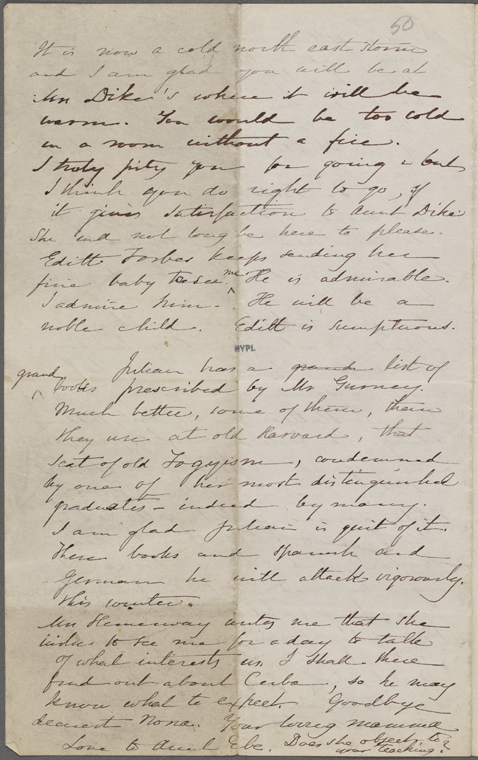 50
It is now a cold north east storm
and I am glad you will be at
Mrs Dike's where it will be
warm. You would be too cold
in a room without a fire.
I truly pity you for going & but
I think you do right to go, if
it gives satisfaction to Aunt Dike
She will not long be here to please.
Edith Forbes keeps sending her
fine baby to see me He is admirable.
I admire him. He will be a
noble child. Edith is sumptuous.
NYPL
Julian has a grand list of
grand books prescribed by Mr Gurney
Much better, some of them, than
they use at old Harvard, that
seat of old Fogyism, condemned
by one of her most distinguished
graduates - indeed by many.
I am glad Julian is quit of it.
These books and Spanish and
German he will attack vigorously.
this winter.
Mrs Hemenway writes me that she
wishes to see me for a day to talk
of what interests us. I shall there
find out about Cuba, so he may
know what to expect. Goodbye
dearest Nona. Your loving mamma
Love to Aunt Ebe. Does she object to
your teaching?